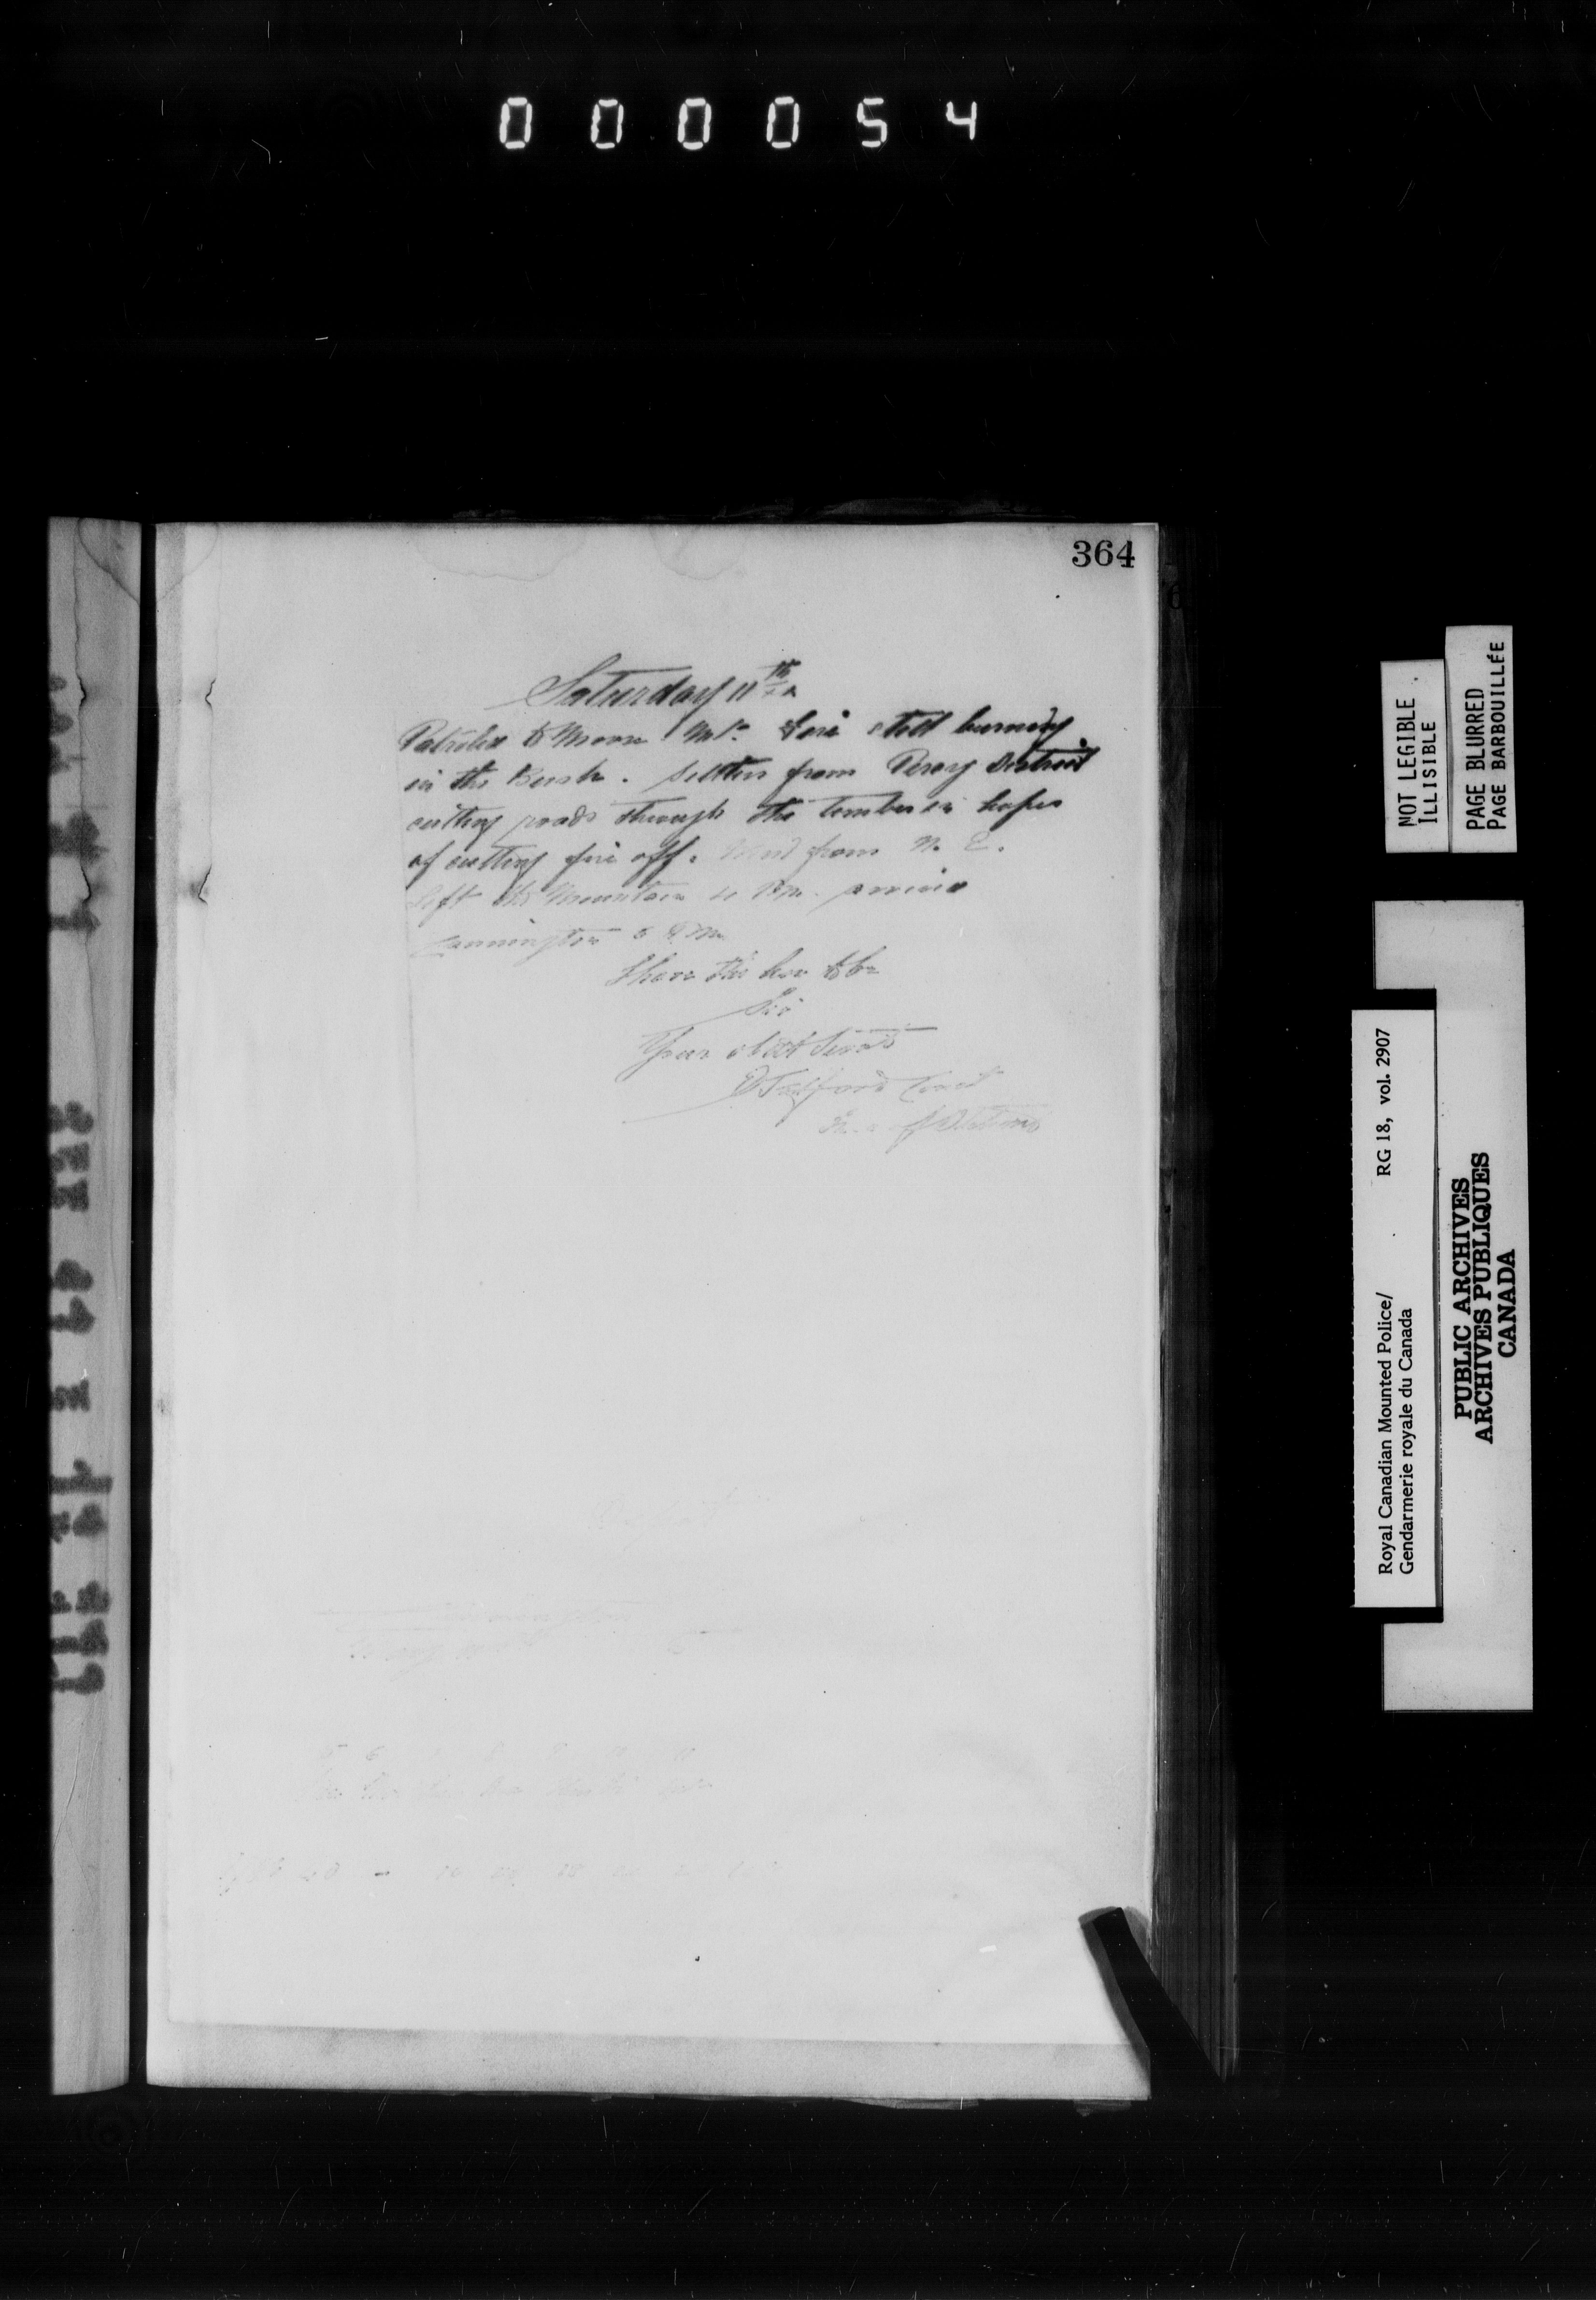 000054
364
Saturday 11th
Patroled to Moose Mt. Fire still burning
in the Bush. Settlers from Percy District
cutting roads through the timber in hopes
of cutting fire off. Wind from N. E.
Left the Mountain 4 P.M. arrived
Cannington 6 P.M.
I have the hon to be
Sir
Your obdt Servt
Const
NOT LEGIBLE
ILLISIBLE
PAGE BLURRED
PAGE BARBOUILLÉE
Royal Canadian Mounted Police/ RG 18, vol. 2907
Gendarmerie royale du Canada
PUBLIC ARCHIVES
ARCHIVES PUBLIQUES
CANADA